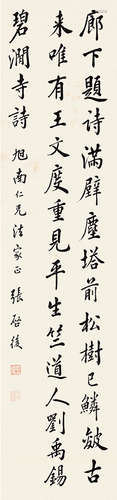 廊下題诗滿壁塵塔前松樹已鱗皴古
来唯有王文度重見平生竺道人劉禹錫
碧澗寺詩 旭南仁兄法家正 張啓後